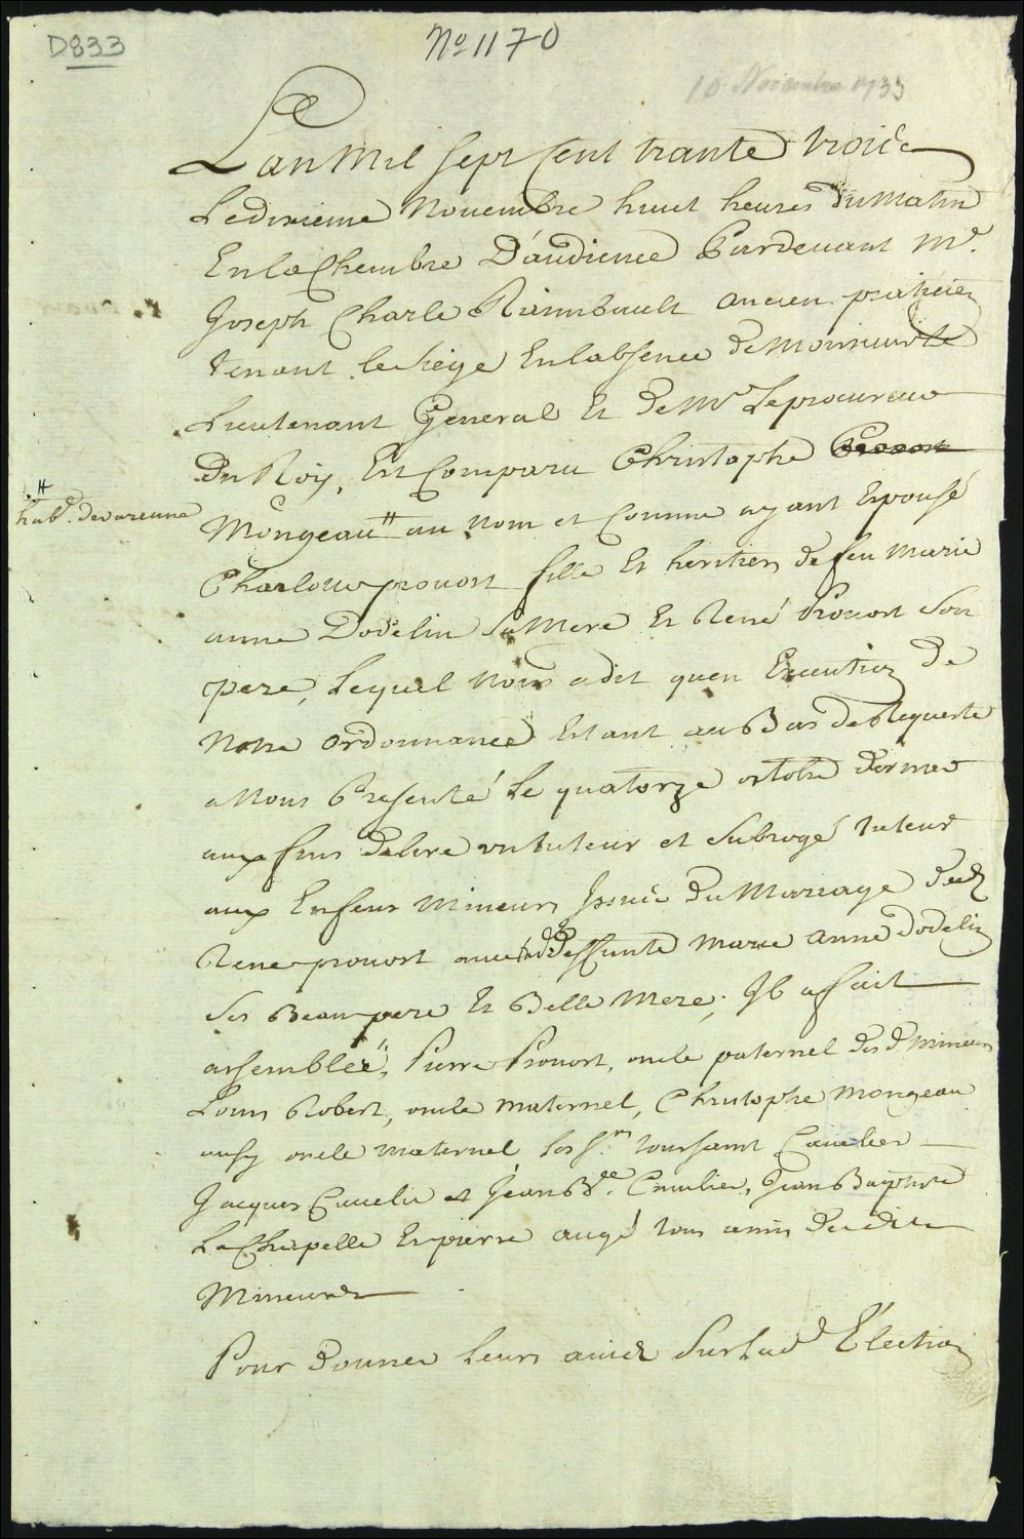 D833
No 1170
10 Novembre 1733
Lan Mil sept Cent trante troisc
Ledixieme Nouembre huit heures du Matin
En la Chembre D'audience Pardeuant Mr.
Joseph Charle Raimbault ancien praticien
tenant le siege En labsence de Monsieur le
Lieutenant General Et de Mr Le procureur
Du Roy, Est Comparu Christophe Prouost
#
hab. de varenne
Mongeau # au nom et Comme ayant Epousé
Charlotte prouost fille Et heritier de feu Marie
anne Dodelin Sa Mere Et René Prouost Son
pere, Lequel Nous a dit quen Execution De
Notre ordonnance Estant au Bas de Requeste
a Nous Presenté Le quatorze octobre dernier
aux fins delire un tuteur et subrogé tuteur
aux Enfans Mineurs Issuie Du Mariage dud
Rene prouost auec deffunte Marie Anne Dodelin
Ses Beau pere Et Belle Mere; Il a fait
assembler, Pierre Prouost, oncle paternel desd. Mineurs
Louis Robert, oncle Maternel, Christophe Mongeau
ausy oncle Maternel Les Srs toussaint Cauelier
Jacques Cauelie et Jean Bte. Cauelier, Jean Baptiste
La Chapelle Et pierre augé tous amis desdits
Mineurs
Pour donner Leurs auis Sur Lad Élection